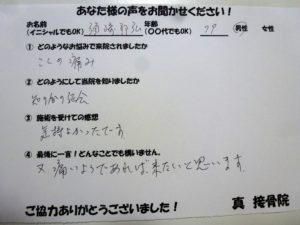 あなた様の声をお聞かせください!
お名前 年齢
(イニシャルでもOK) (〇〇代でもOK) 男性 女性
① どのようなお悩みで来院されましたか
こしの痛み
② どのようにして当院を知りましたか
知り合の紹介
③ 施術を受けての感想
気持よかったです
④ 最後に一言!どんなことでも構いません。
又痛いようであれば来たいと思います。
ご協力ありがとうございました! 真 接骨院